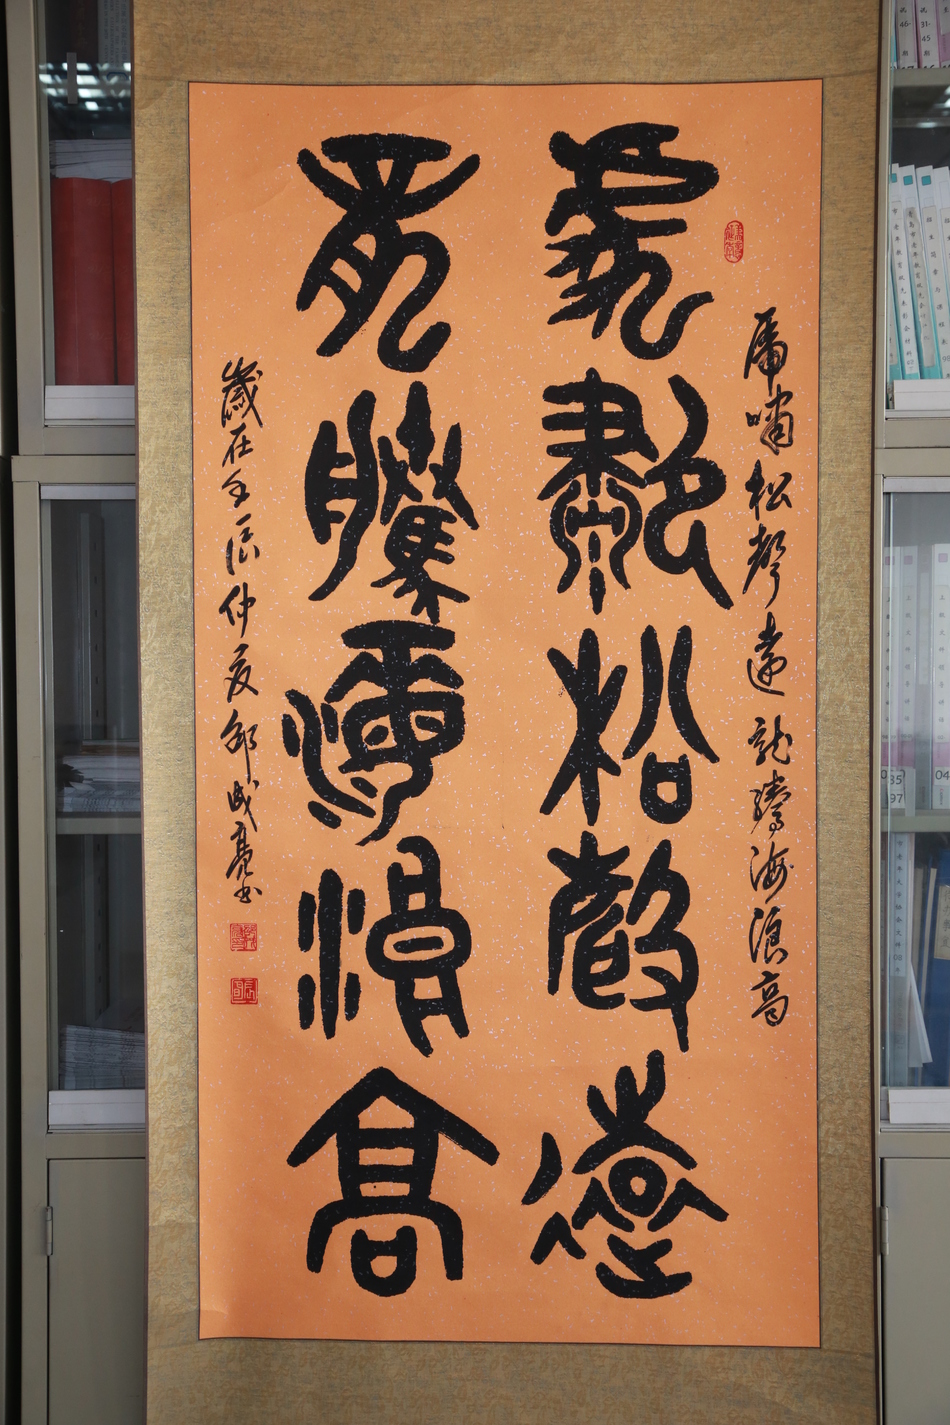 虎嘯松聲遠 龍騰海浪高
虎歗松聲遠
龍騰海浪高
歲在壬辰仲夏邵成亮書